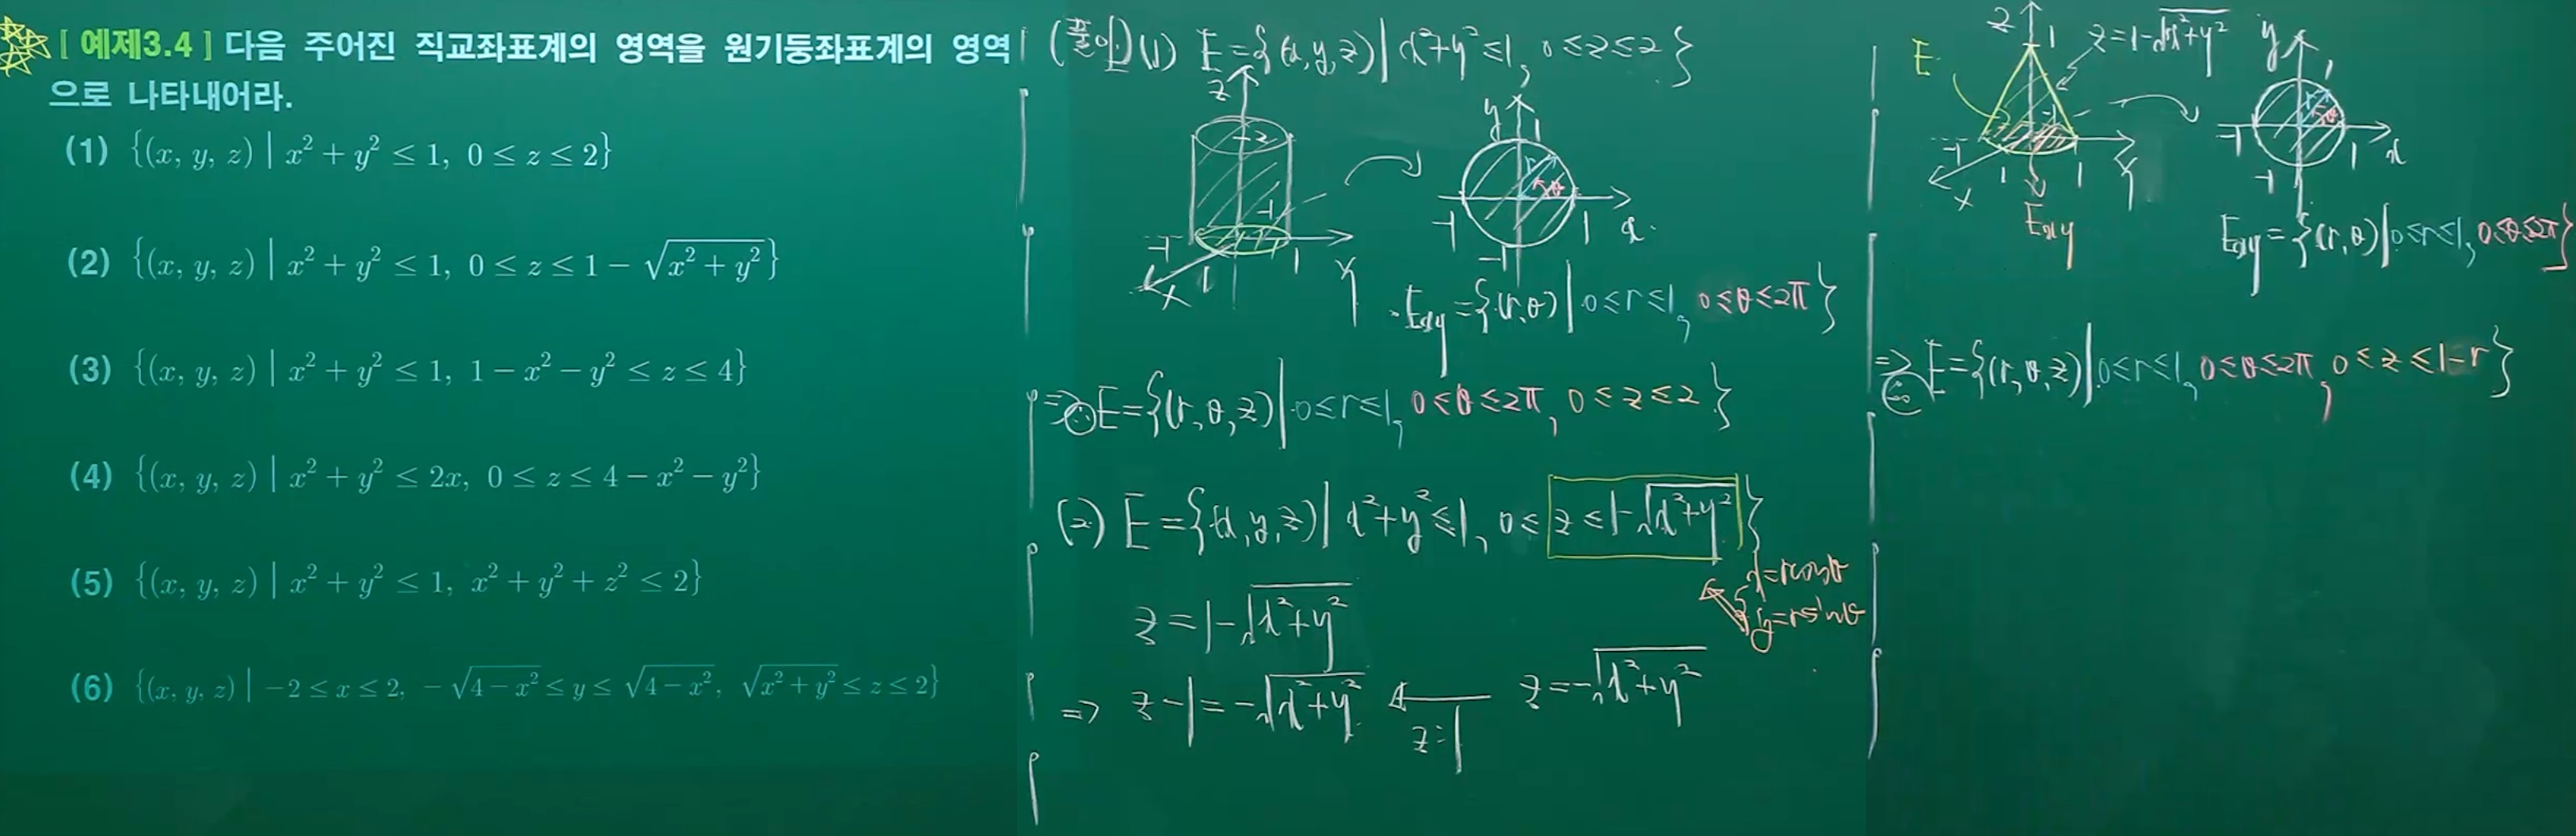 [ 예제3.4 ] 다음 주어진 직교좌표계의 영역을 원기둥좌표계의 영역
으로 나타내어라.
(1) {(x, y, z) | x² + y² ≤ 1, 0 ≤ z ≤ 2}
(2) {(x, y, z) | x² + y² ≤ 1, 0 ≤ z ≤ 1 − √(x² + y²)}
(3) {(x, y, z) | x² + y² ≤ 1, 1 − x² − y² ≤ z ≤ 4}
(4) {(x, y, z) | x² + y² ≤ 2x, 0 ≤ z ≤ 4 − x² − y²}
(5) {(x, y, z) | x² + y² ≤ 1, x² + y² + z² ≤ 2}
(6) {(x, y, z) | −2 ≤ x ≤ 2, −√(4 − x²) ≤ y ≤ √(4 − x²), √(x² + y²) ≤ z ≤ 2}
(풀이) (1) E = {(x, y, z) | x² + y² ≤ 1, 0 ≤ z ≤ 2}
z
2
-1
-1
1
1
x
y
y
1
r
θ
-1
1
x
-1
Exy = {(r, θ) | 0 ≤ r ≤ 1, 0 ≤ θ ≤ 2π}
⇒ ∴ E = {(r, θ, z) | 0 ≤ r ≤ 1, 0 ≤ θ ≤ 2π, 0 ≤ z ≤ 2}
(2) E = {(x, y, z) | x² + y² ≤ 1, 0 ≤ z ≤ 1 − √(x² + y²)}
x = rcosθ
y = rsinθ
z = 1 − √(x² + y²)
⇒ z − 1 = −√(x² + y²) ← z:1 z = −√(x² + y²)
E
z
1
z = 1 − √(x² + y²)
-1
-1
1
1
x
y
Exy
y
1
r
θ
-1
1
x
-1
Exy = {(r, θ) | 0 ≤ r ≤ 1, 0 ≤ θ ≤ 2π}
⇒ ∴ E = {(r, θ, z) | 0 ≤ r ≤ 1, 0 ≤ θ ≤ 2π, 0 ≤ z ≤ 1 − r}